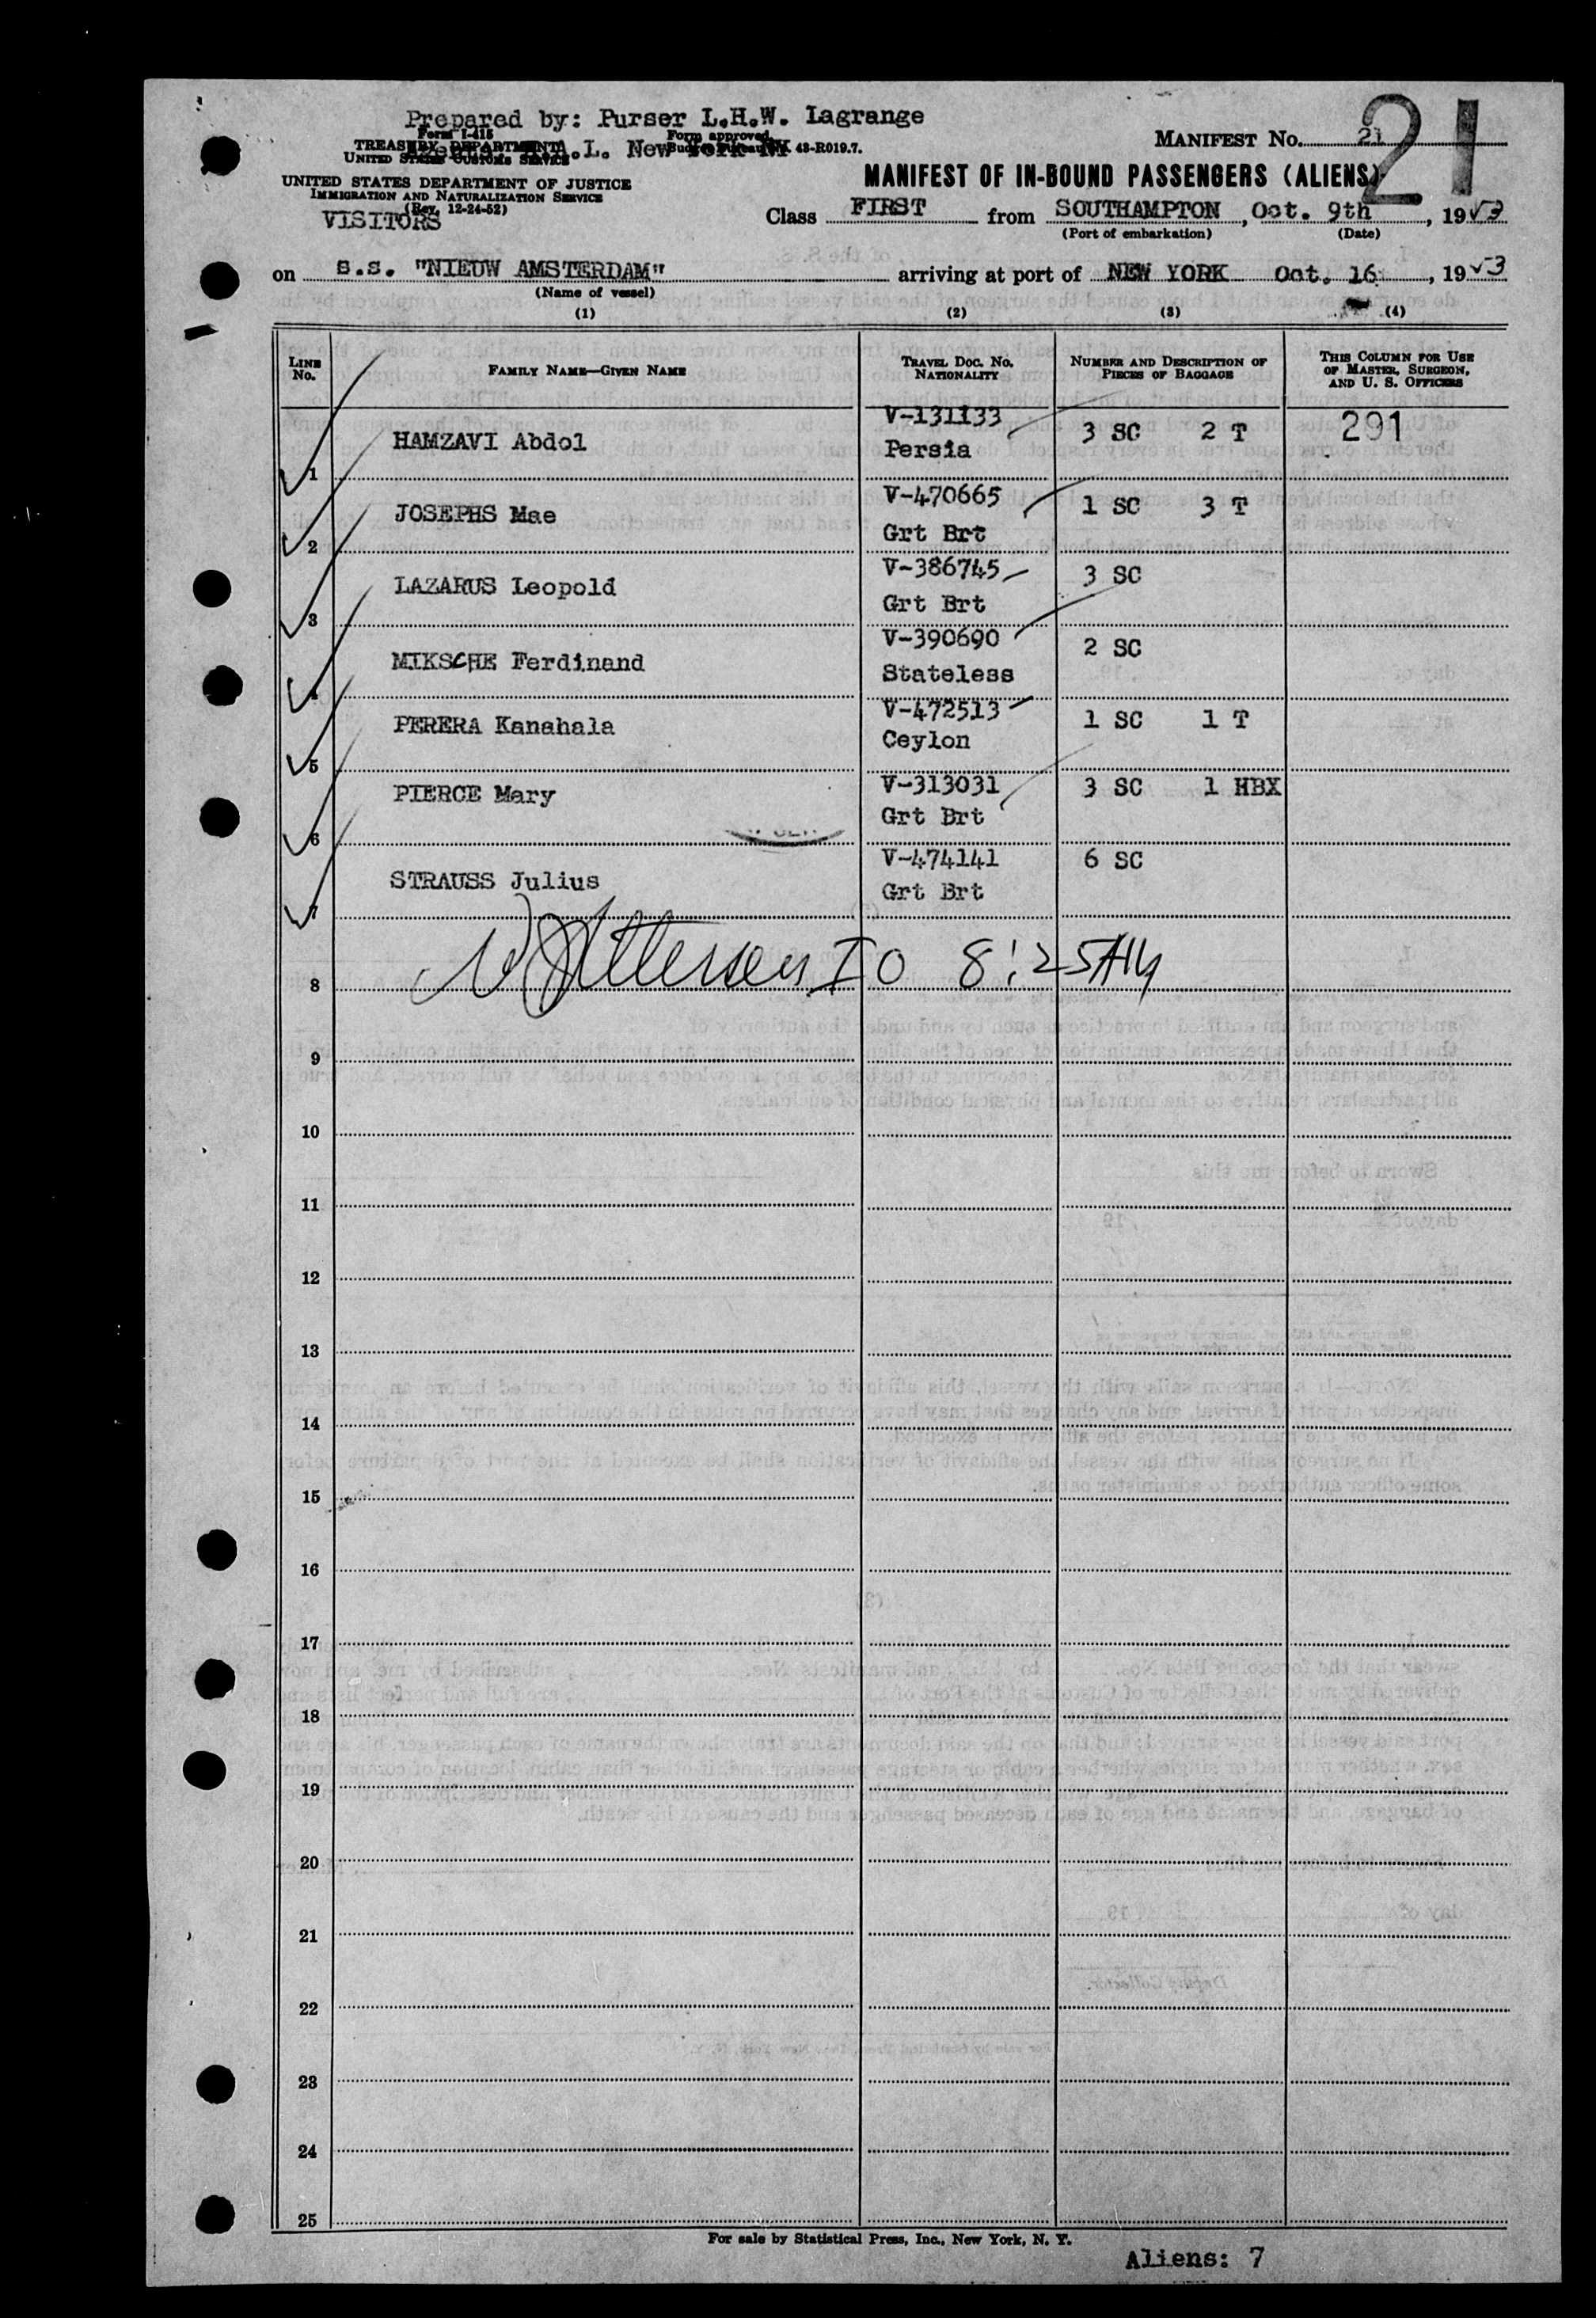 Prepared by: Purser L.H.W. Lagrange
Form I-415
TREASURY DEPARTMENT
UNITED STATES CUSTOMS SERVICE
Form approved.
43-R019.7.
A.L. New York NY
UNITED STATES DEPARTMENT OF JUSTICE
IMMIGRATION AND NATURALIZATION SERVICE
(Rev. 12-24-52)
VISITORS
MANIFEST No. 21
21
MANIFEST OF IN-BOUND PASSENGERS (ALIENS)
Class FIRST from SOUTHAMPTON, Oct. 9th, 1953
(Port of embarkation) (Date)
on s.s. "NIEUW AMSTERDAM" arriving at port of NEW YORK Oct. 16, 1953
(Name of vessel)
(1) (2) (3) (4)
LINE No. FAMILY NAME—GIVEN NAME TRAVEL DOC. NO. NATIONALITY NUMBER AND DESCRIPTION OF PIECES OF BAGGAGE THIS COLUMN FOR USE OF MASTER, SURGEON, AND U. S. OFFICERS
1 HAMZAVI Abdol V-131133 Persia 3 SC 2 T 291
2 JOSEPHS Mae V-470665 Grt Brt 1 SC 3 T
3 LAZARUS Leopold V-386745 Grt Brt 3 SC
4 MIKSCHE Ferdinand V-390690 Stateless 2 SC
5 PERERA Kanahala V-472513 Ceylon 1 SC 1 T
6 PIERCE Mary V-313031 Grt Brt 3 SC 1 HBX
7 STRAUSS Julius V-474141 Grt Brt 6 SC
8 I O 8:25AM
9
10
11
12
13
14
15
16
17
18
19
20
21
22
23
24
25
For sale by Statistical Press, Inc., New York, N. Y.
Aliens: 7